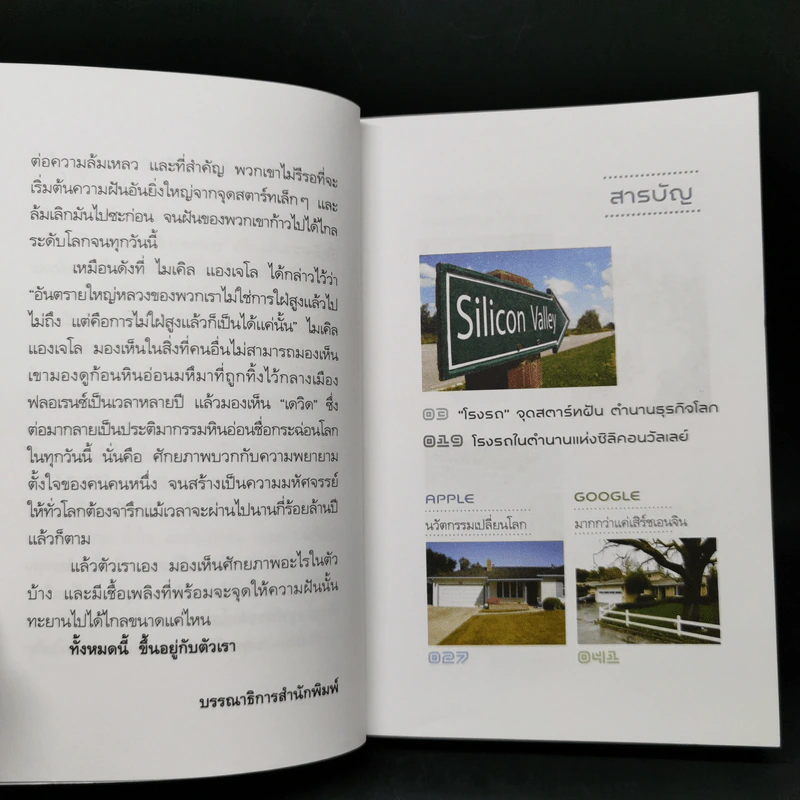 ต่อความล้มเหลว และที่สำคัญ พวกเขาไม่รีรอที่จะ
เริ่มต้นความฝันอันยิ่งใหญ่จากจุดสตาร์ทเล็กๆ และ
ล้มเลิกมันไปซะก่อน จนฝันของพวกเขาก้าวไปได้ไกล
ระดับโลกจนทุกวันนี้
เหมือนดังที่ ไมเคิล แองเจโล ได้กล่าวไว้ว่า
"อันตรายใหญ่หลวงของพวกเราไม่ใช่การใฝ่สูงแล้วไป
ไม่ถึง แต่คือการไม่ใฝ่สูงแล้วก็เป็นได้แค่นั้น" ไมเคิล
แองเจโล มองเห็นในสิ่งที่คนอื่นไม่สามารถมองเห็น
เขามองดูก้อนหินอ่อนมหึมาที่ถูกทิ้งไว้กลางเมือง
ฟลอเรนซ์เป็นเวลาหลายปี แล้วมองเห็น "เดวิด" ซึ่ง
ต่อมากลายเป็นประติมากรรมหินอ่อนชื่อกระฉ่อนโลก
ในทุกวันนี้ นั่นคือ ศักยภาพบวกกับความพยายาม
ตั้งใจของคนคนหนึ่ง จนสร้างเป็นความมหัศจรรย์
ให้ทั่วโลกต้องจารึกแม้เวลาจะผ่านไปนานกี่ร้อยล้านปี
แล้วก็ตาม
แล้วตัวเราเอง มองเห็นศักยภาพอะไรในตัว
บ้าง และมีเชื้อเพลิงที่พร้อมจะจุดให้ความฝันนั้น
ทะยานไปได้ไกลขนาดแค่ไหน
ทั้งหมดนี้ ขึ้นอยู่กับตัวเรา
บรรณาธิการสำนักพิมพ์
สารบัญ
Silicon Valley
03 "โรงรถ" จุดสตาร์ทฝัน ตำนานธุรกิจโลก
019 โรงรถในตำนานแห่งซิลิคอนวัลเลย์
APPLE
นวัตกรรมเปลี่ยนโลก
027
GOOGLE
มากกว่าแค่เสิร์ชเอนจิน
041